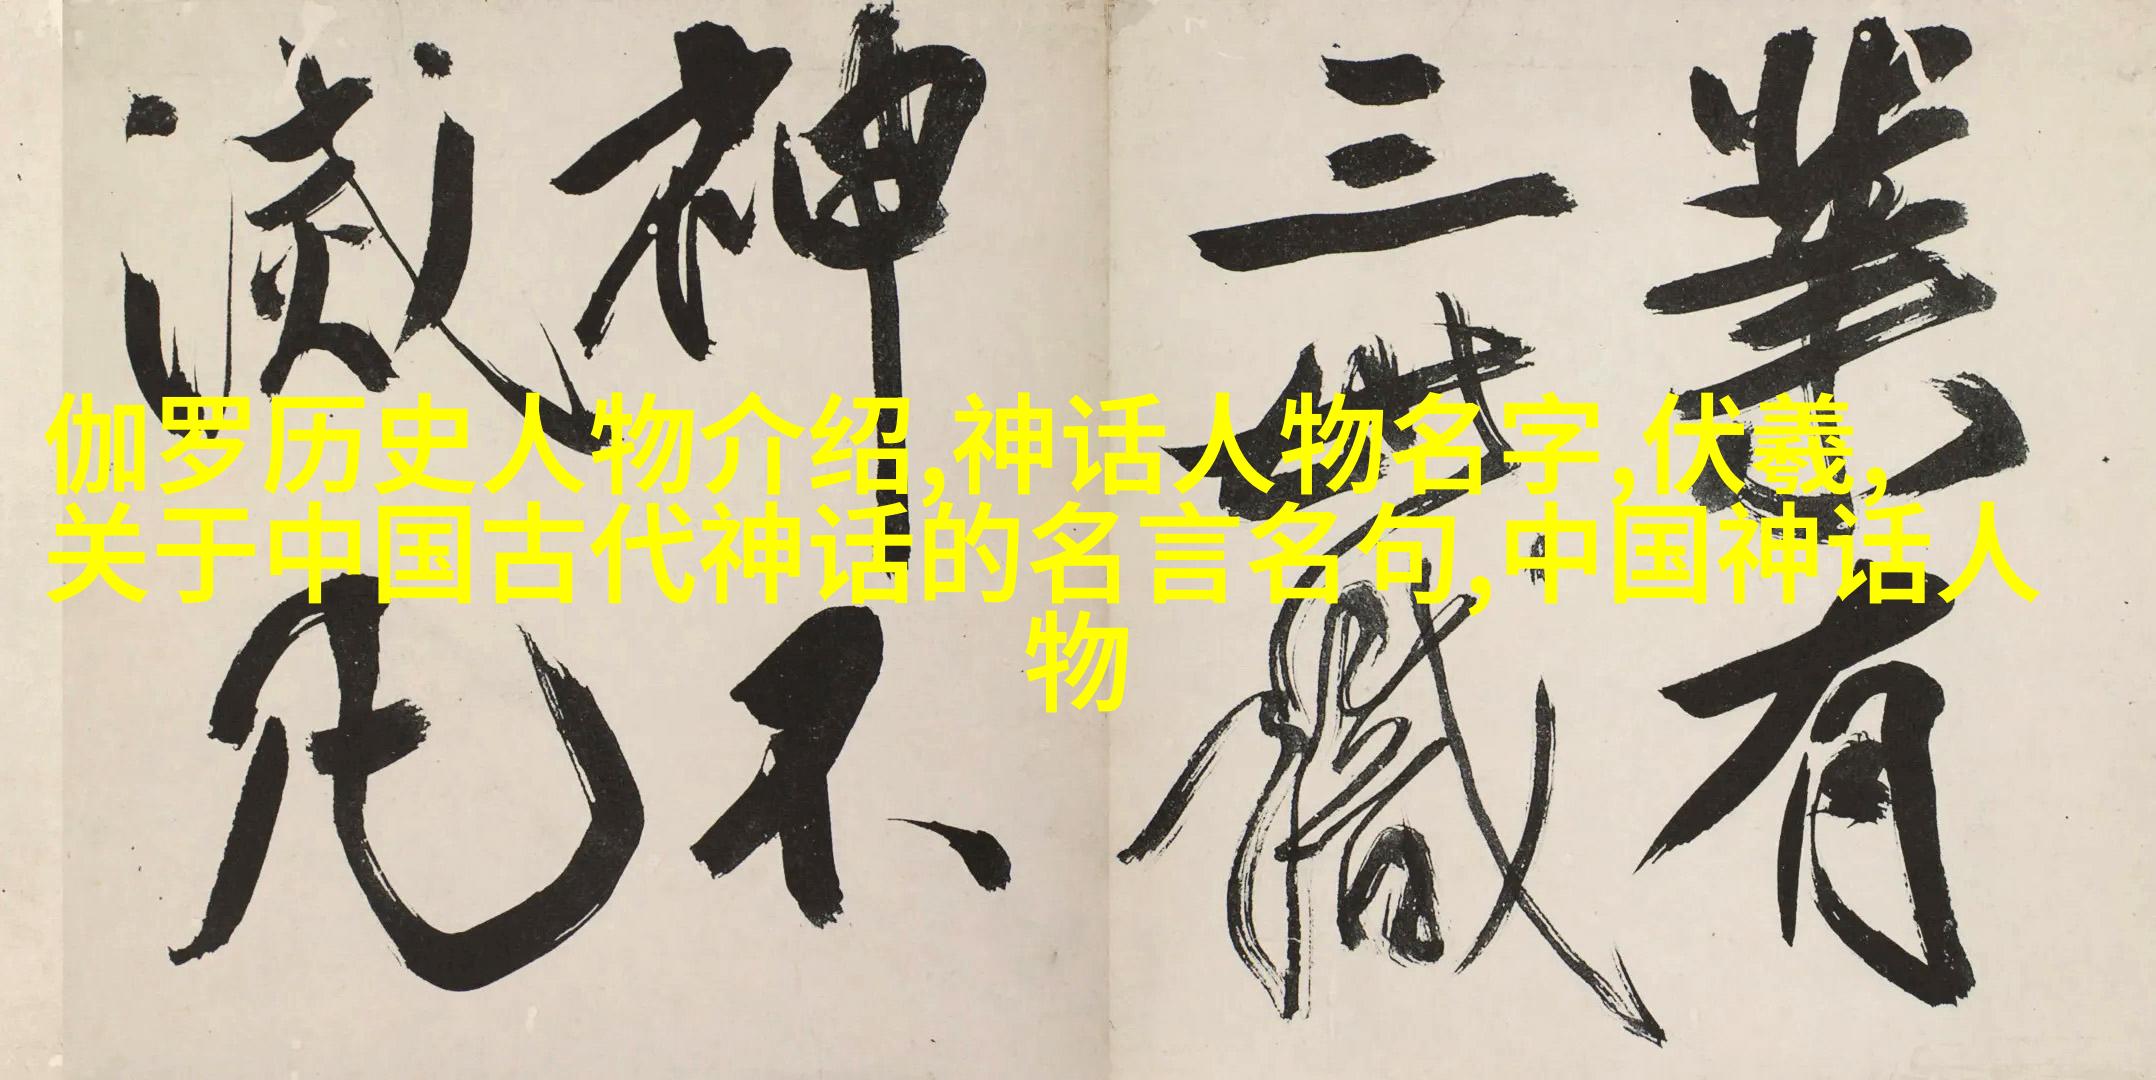 伽罗历史人物介绍,神话人物名字,伏羲,
关于中国古代神话的名言名句,中国神话人
物
業有
三世識
神不
滅凡